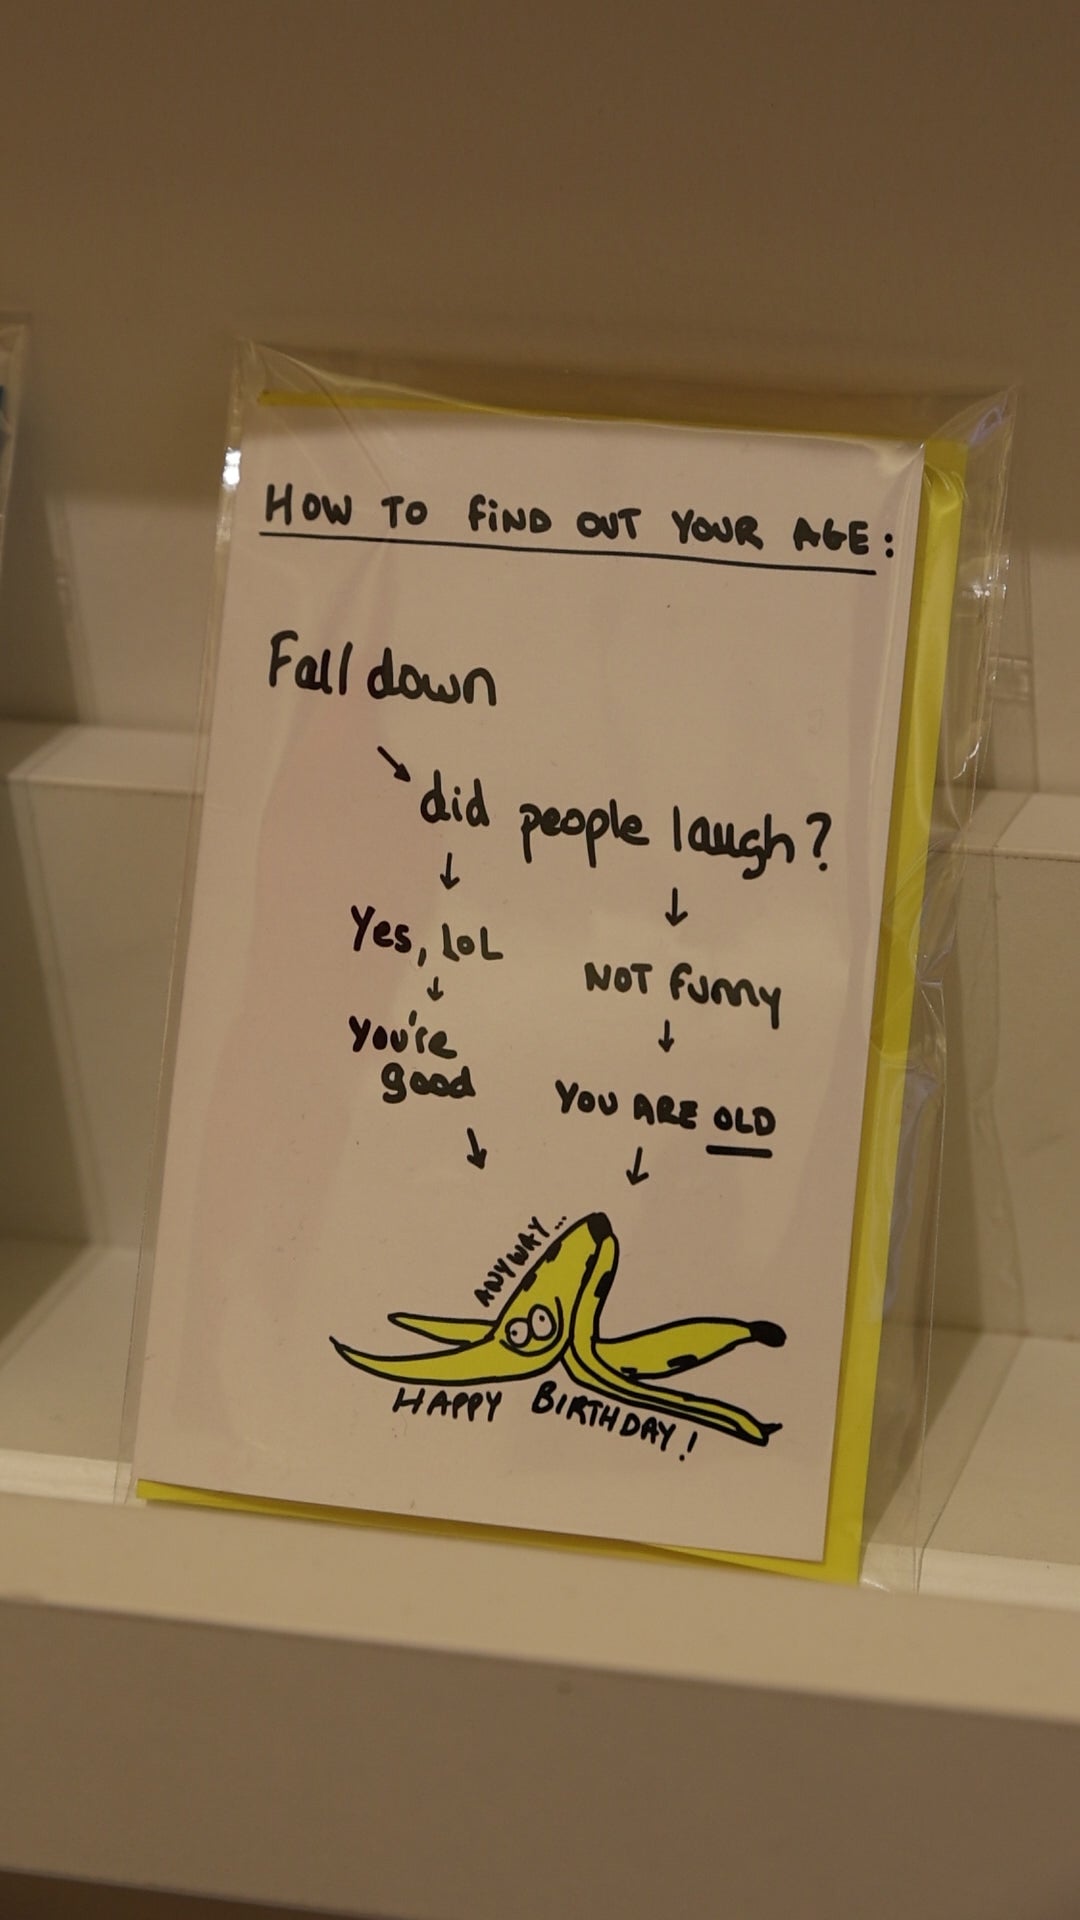 HOW TO FiND OUT YOUR AGE:
Fall down
did people laugh?
Yes, LOL
NOT funny
You're
good
YOU ARE OLD
ANYWAY...
HAPPY BIRTHDAY!